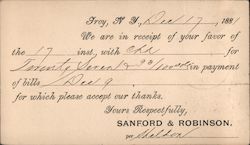 Troy, N. Y., Dec 17, 188
We are in receipt of your favor of
the 17 inst. with Chk for
Twenty Seven & 93/100 in payment
of bills Dec 9
for which please accept our thanks.
Yours Respectfully,
SANFORD & ROBINSON.
per Sheldon